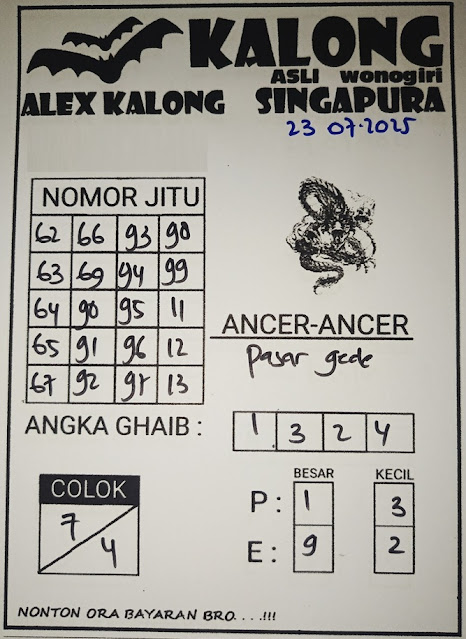 KALONG
ASLI wonogiri
ALEX KALONG SINGAPURA
23 07.2025
NOMOR JITU
62 66 93 98
63 69 94 99
64 90 95 11
65 91 96 12
67 92 97 13
ANCER-ANCER
Pasar gede
ANGKA GHAIB : 1 3 2 4
BESAR KECIL
COLOK
P : 1 3
7
4
E : 9 2
NONTON ORA BAYARAN BRO. . . .!!!